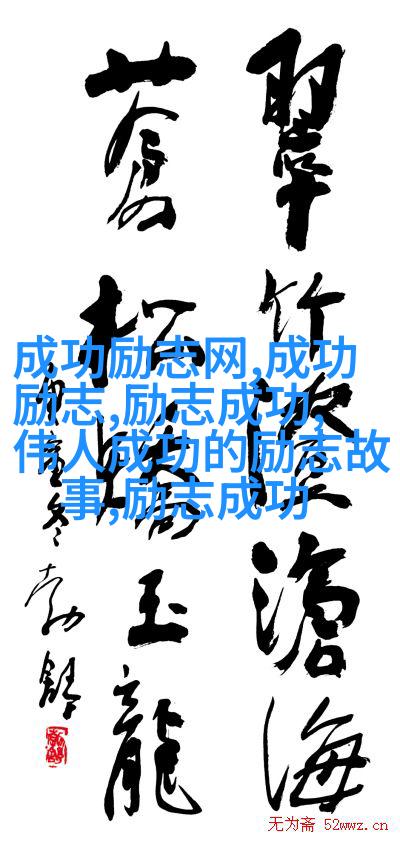 翠竹隱滄海
蒼松玉龍
成功励志网,成功
励志,励志成功,
伟人成功的励志故
事,励志成功
无为斋 52wwz.cn